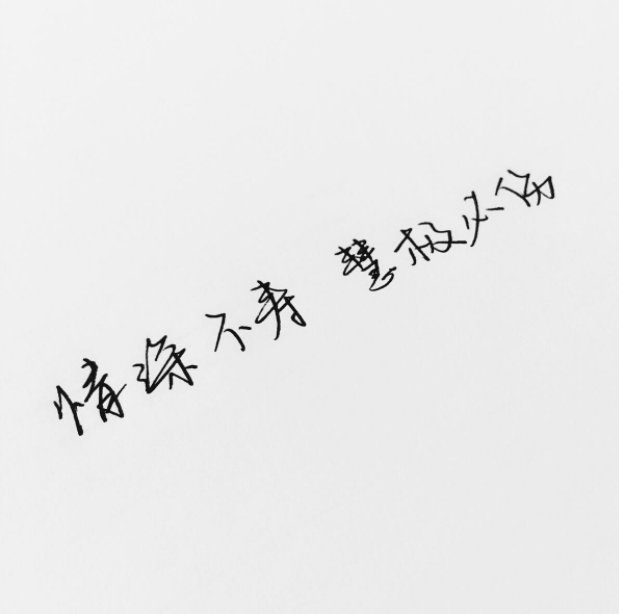 情深不寿 慧极必伤